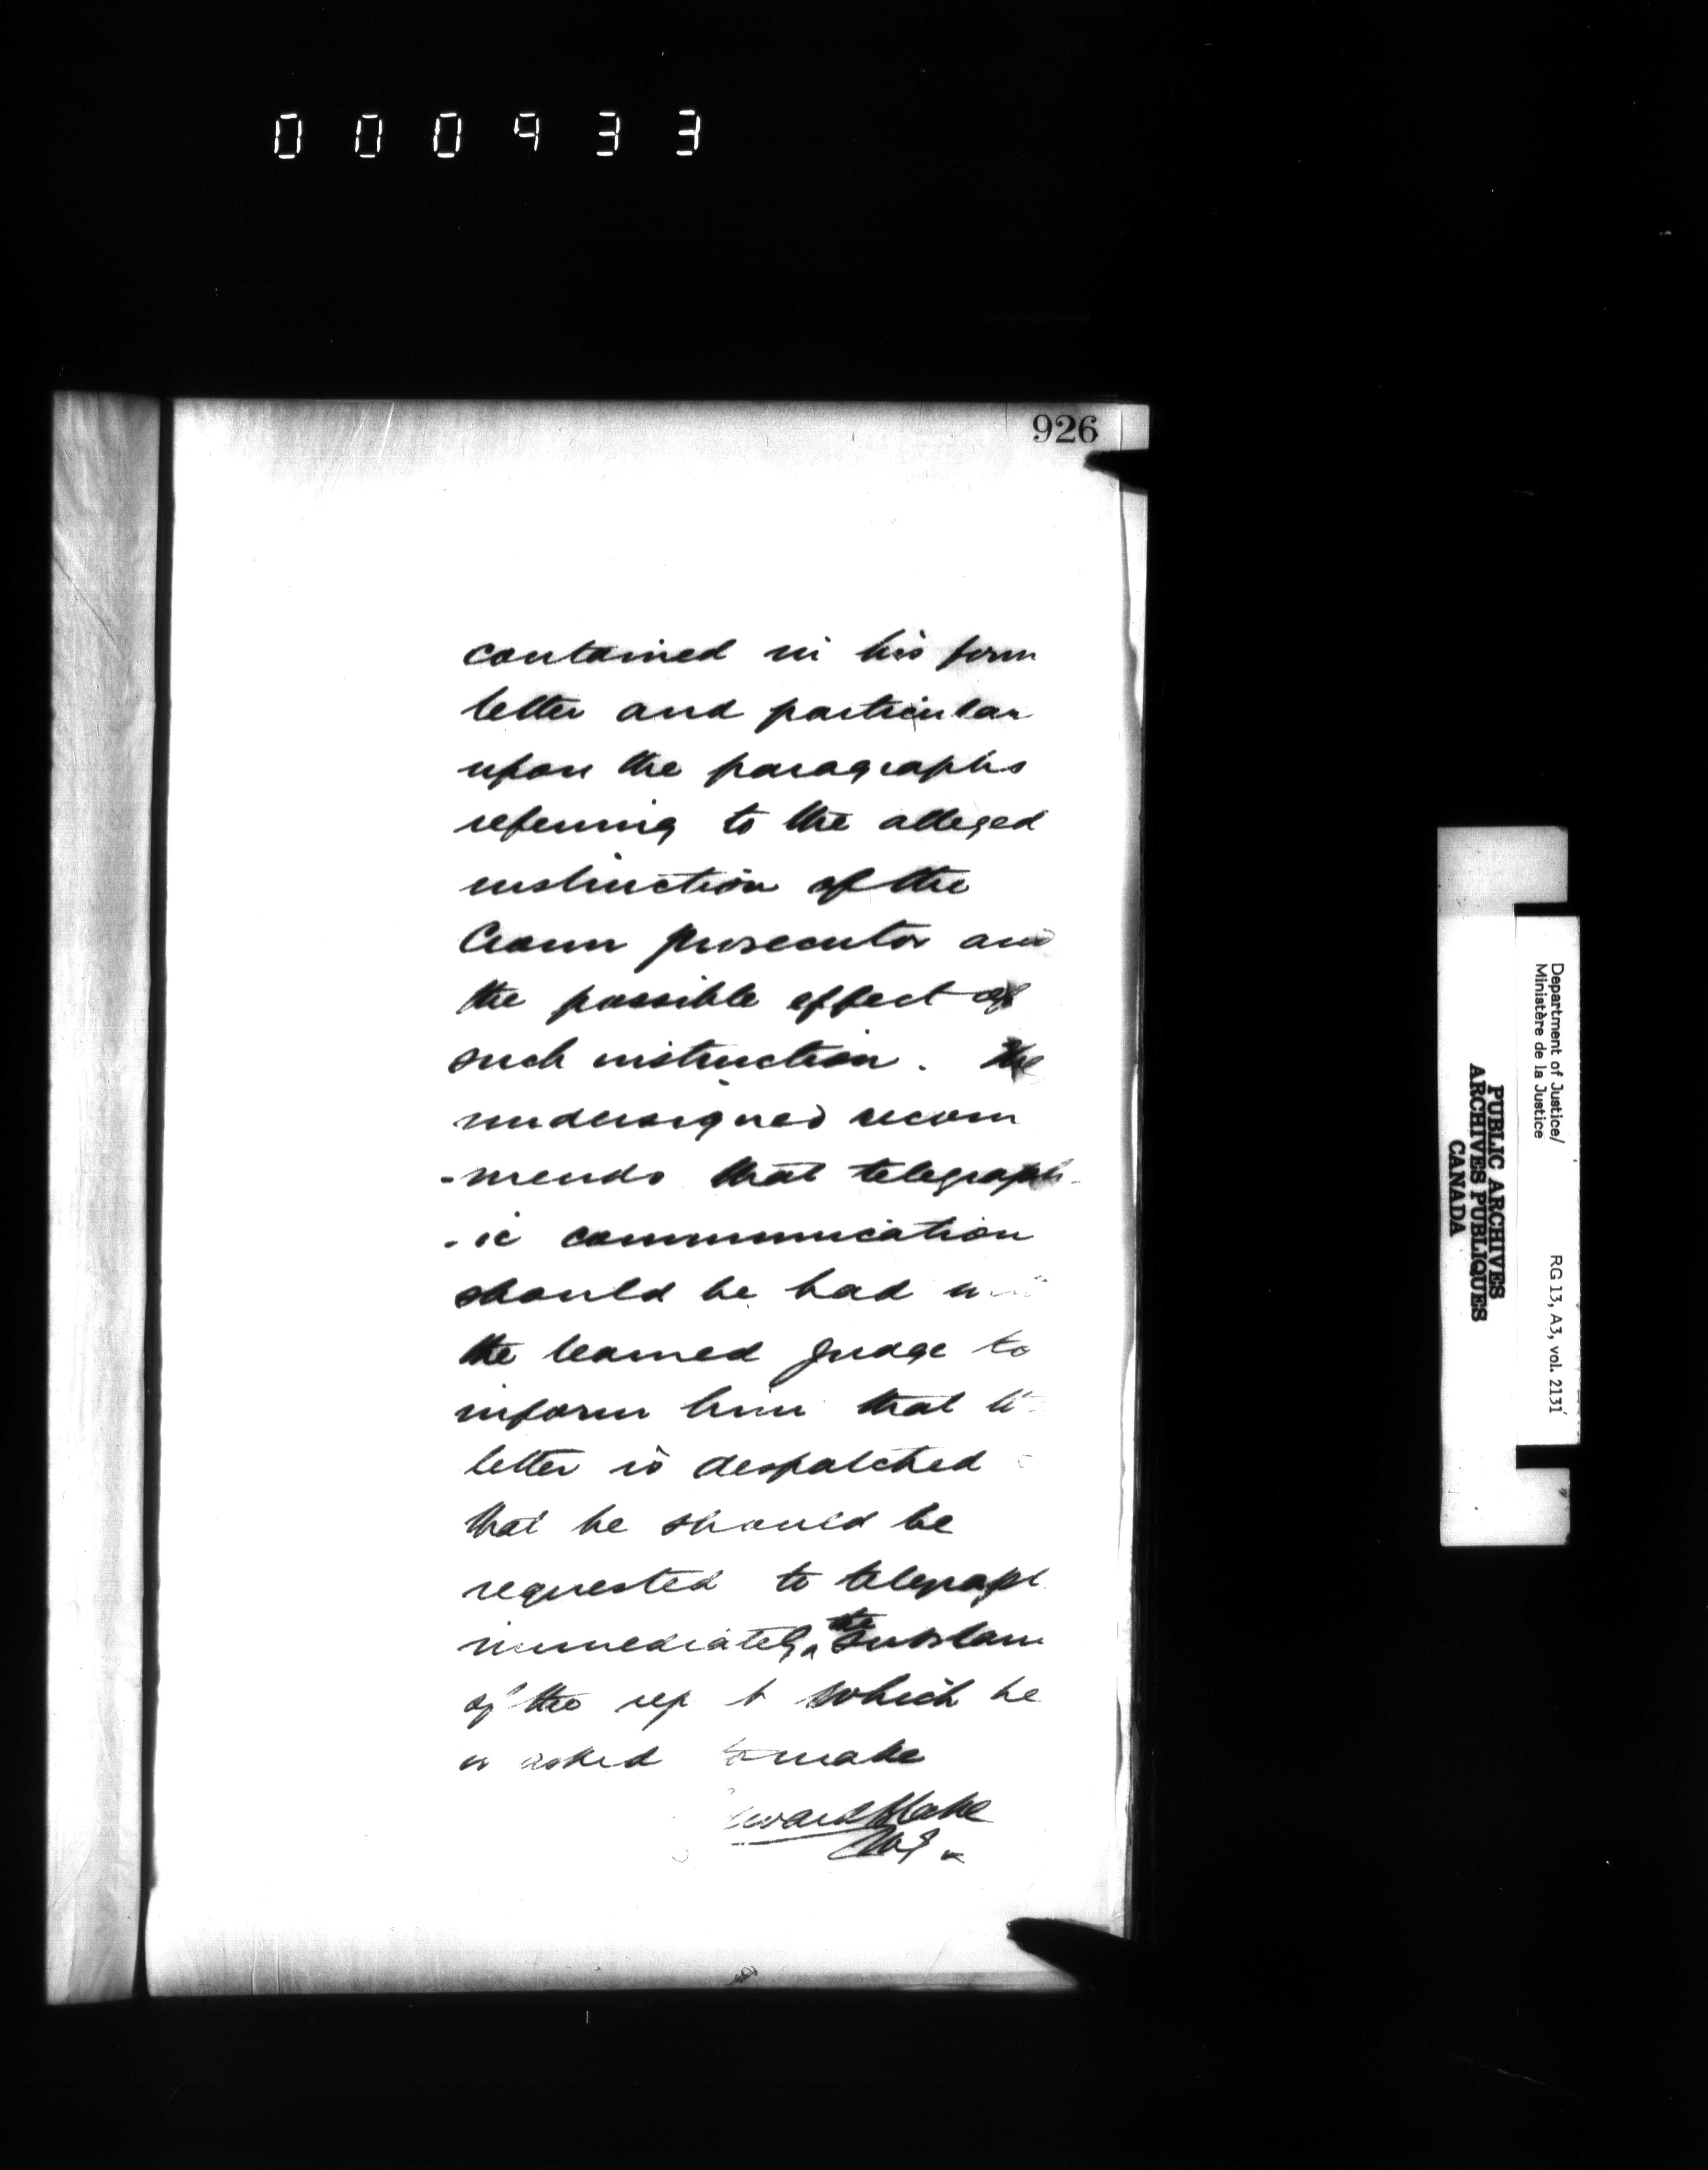 000933
926
contained in his form
letter and particular
upon the paragraphs
referring to the alleged
instruction of the
Crown prosecutor and
the possible effect of
such instruction. The
undersigned recom
-mends that telegraph-
-ic communication
should be had
the learned Judge to
inform him that
letter is despatched
that he should be
requested to telegraph
immediately the Substan
of the rep t which he
is asked to make
Edward Blake
M.J.
Department of Justice/
Ministère de la Justice
RG 13, A3, vol. 2131
PUBLIC ARCHIVES
ARCHIVES PUBLIQUES
CANADA